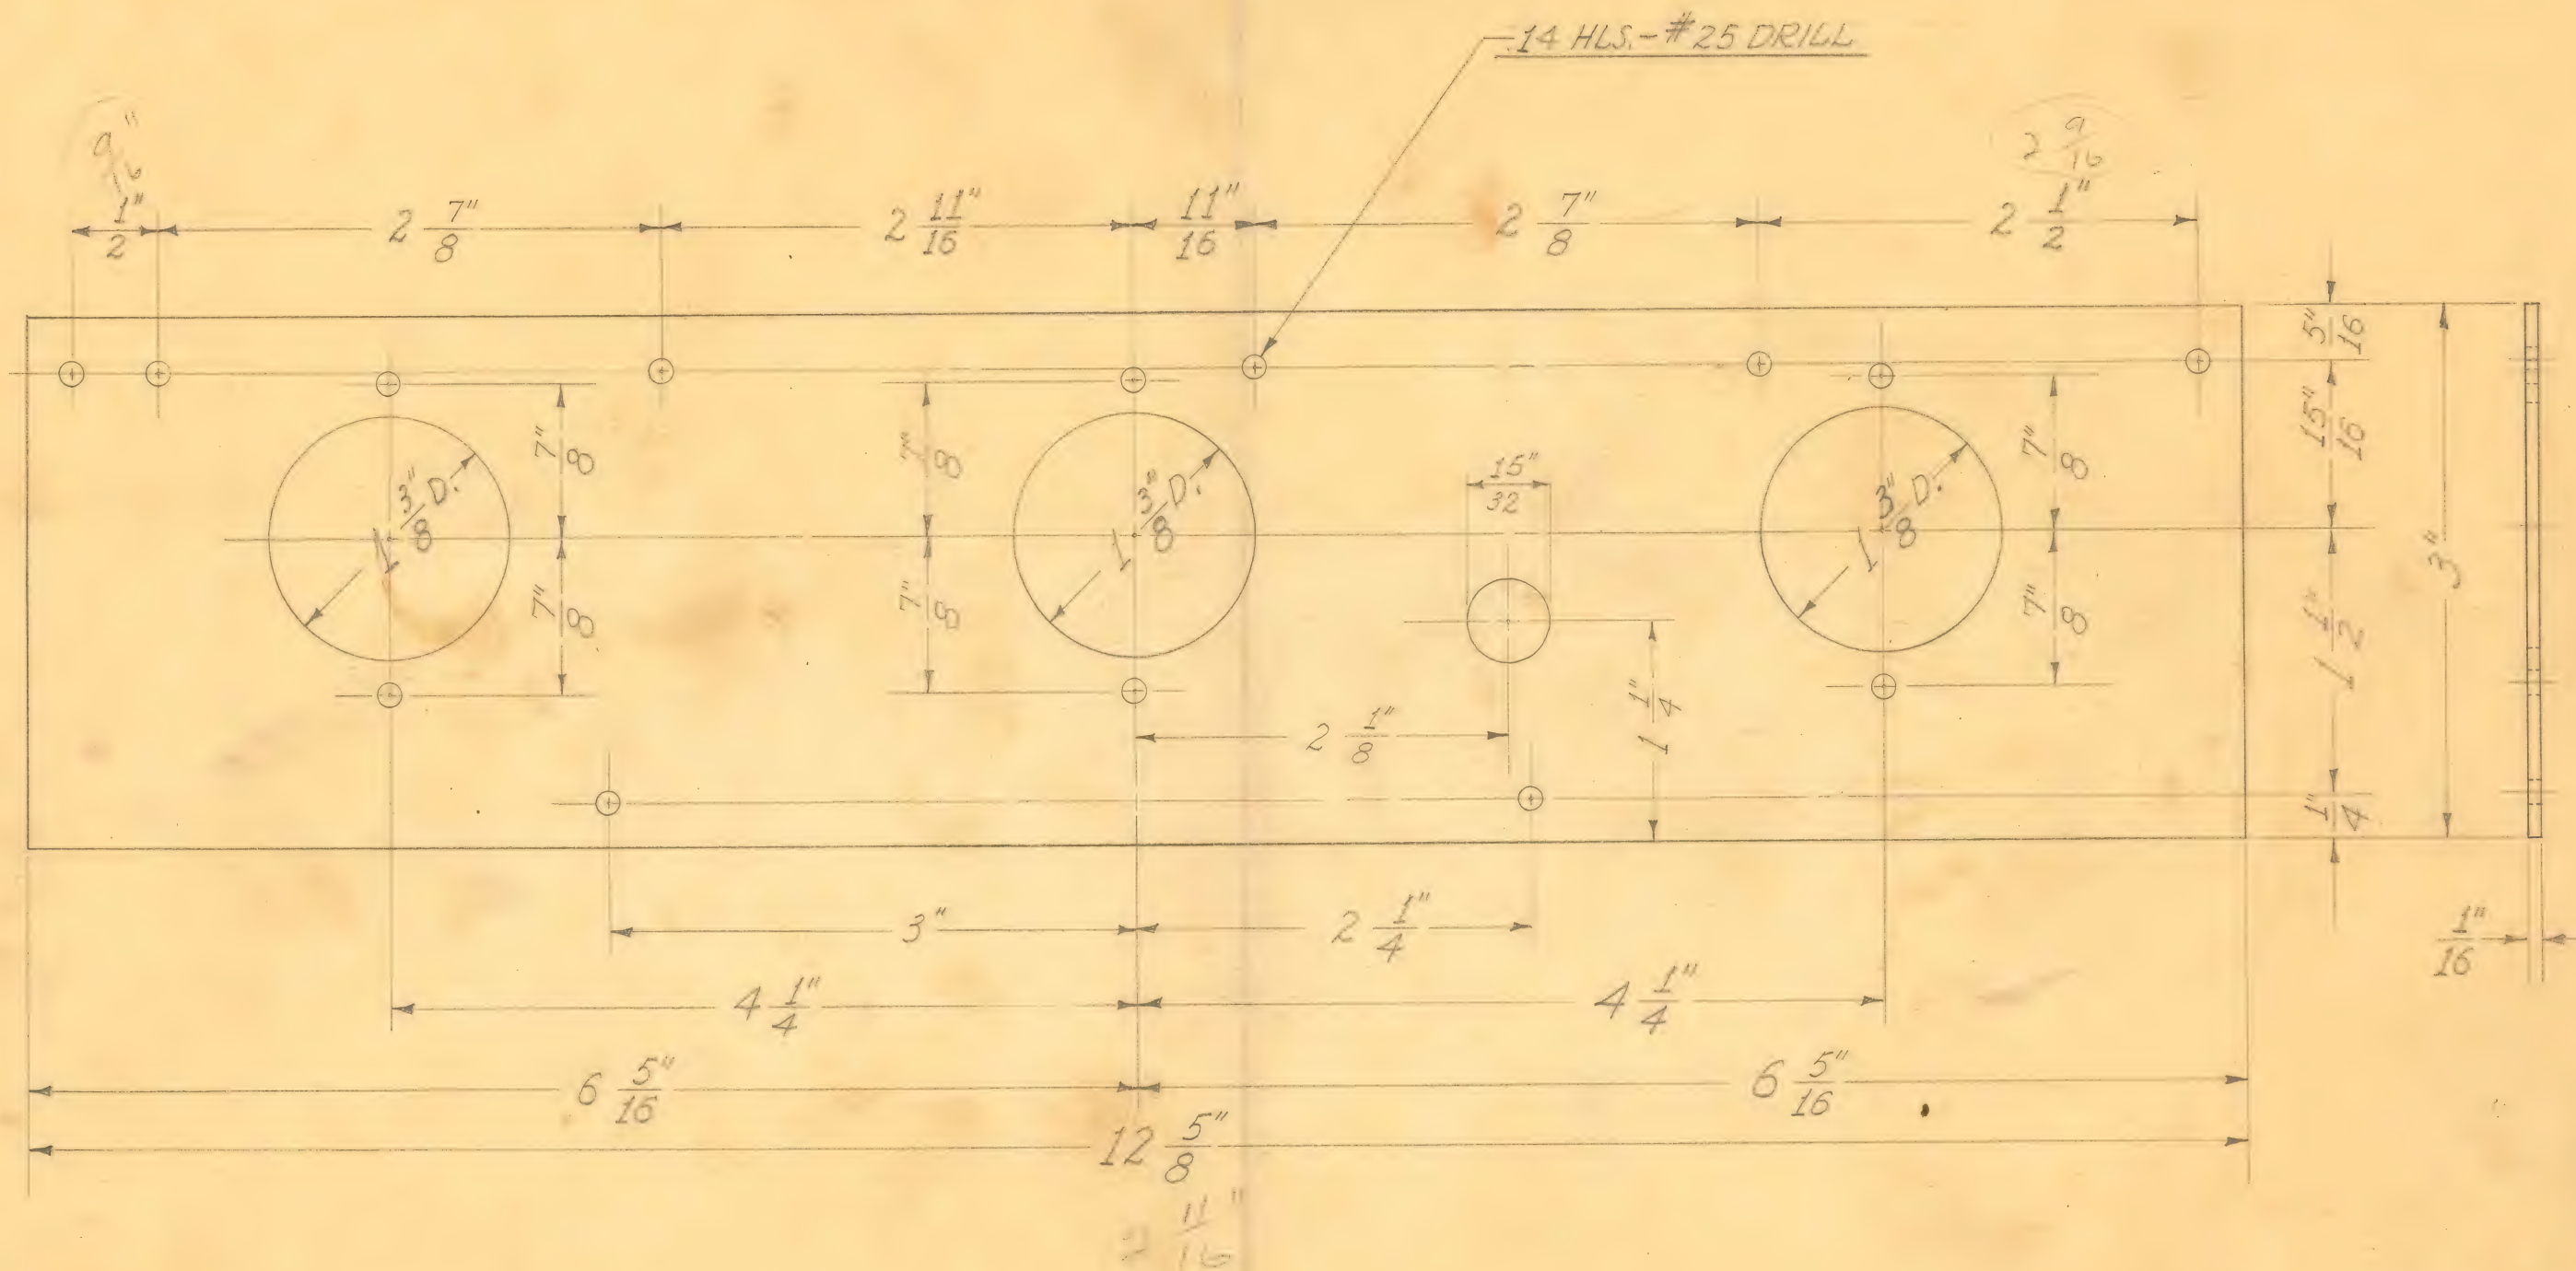 14 HLS.-#25 DRILL
9/16"
2 9/16
1/2"
2 7/8"
2 11/16"
11/16"
2 7/8"
2 1/2"
5/16"
15/16"
1 1/2"
1/4"
3"
7/8"
7/8"
7/8"
7/8"
7/8"
7/8"
1 3/8" D.
1 3/8" D.
1 3/8" D.
15"/32
2 1/8"
1 1/4"
3"
2 1/4"
1/16"
4 1/4"
4 1/4"
6 5/16"
6 5/16"
12 5/8"
11/16"